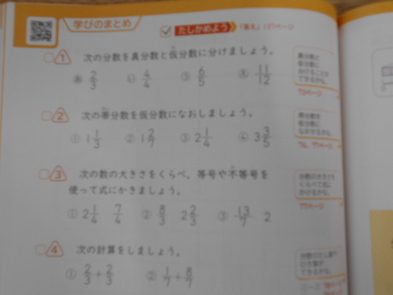 学びのまとめ
たしかめよう
1 次の分数を真分数と仮分数に分けましょう。
あ 2/3 い 4/4 う 6/5 え 11/12
2 次の帯分数を仮分数になおしましょう。
① 1 1/3 ② 1 2/7 ③ 2 1/4 ④ 3 3/5
3 次の数の大きさをくらべ、等号や不等号を
使って式にかきましょう。
① 2 1/4 7/4 ② 8/3 2 2/3 ③ 13/7 2
4 次の計算をしましょう。
① 2/3+2/3 ② 1/7+8/7